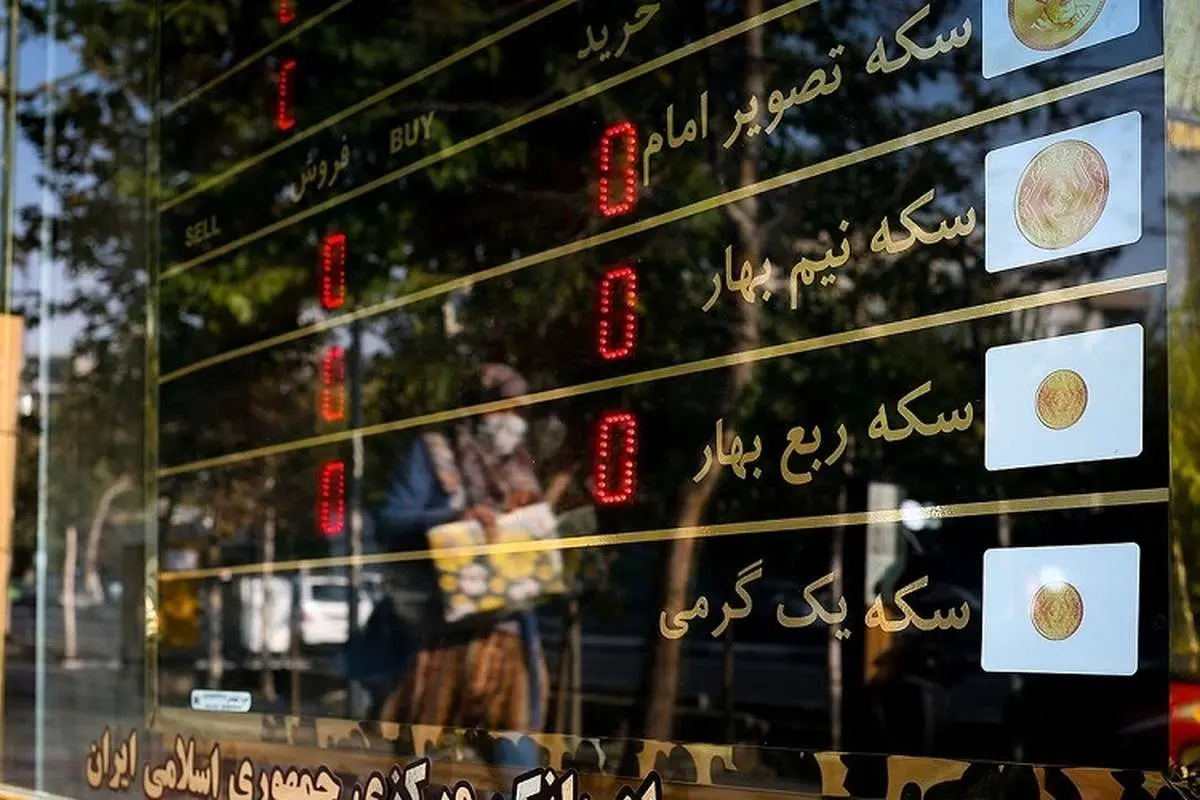 خرید
BUY
فروش
SELL
سکه تصویر امام
0
سکه نیم بهار
0
0
سکه ربع بهار
0
0
سکه یک گرمی
0
مرکزی جمهوری اسلامی ایران